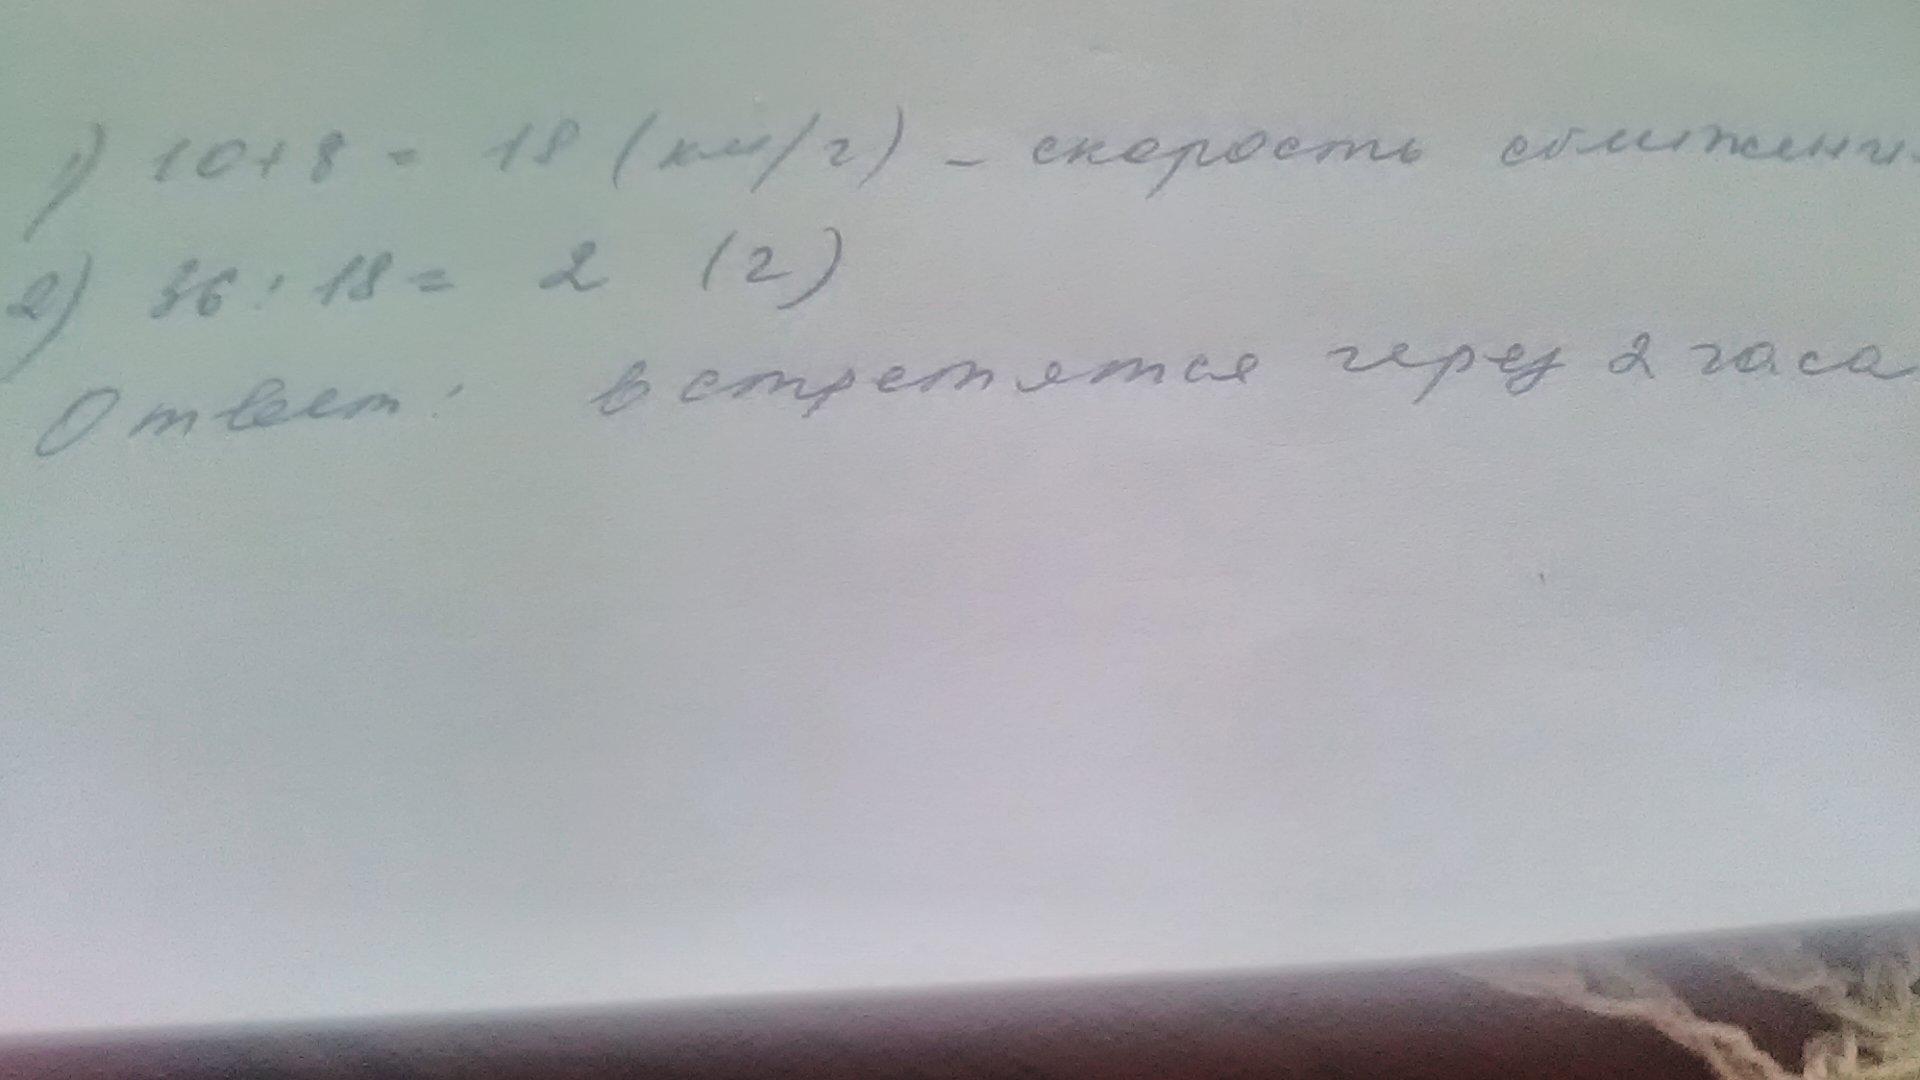 1) 10+8 = 18 (км/ч) - скорость сближени
2) 36 : 18 = 2 (ч)
Ответ: встретятся через 2 часа